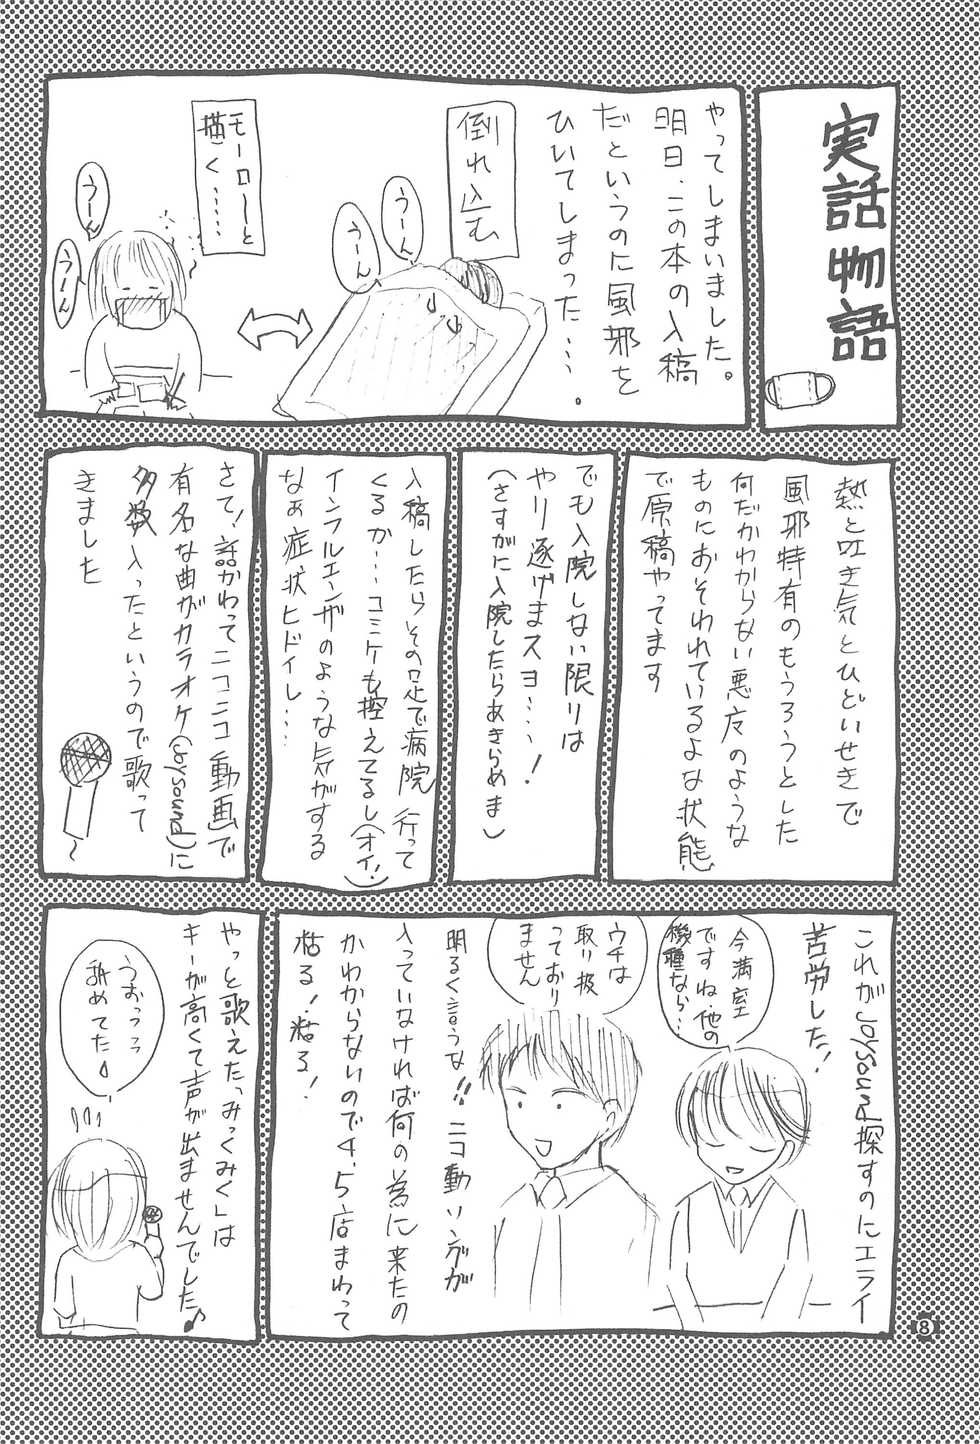 実話物語
やってしまいました。
明日、この本の入稿
だというのに風邪を
ひいてしまった・・・・。
倒れ込む
うーん
うーん
モーローと
描く・・・・・
うーん
うーん
熱と吐き気とひどいせきで
風邪特有のもうろうとした
何だかわからない悪夜のような
ものにおそわれているよな状態
で原稿やってます
でも入院しない限りは
やり遂げまスヨ・・・・!
(さすがに入院したらあきらめま)
入稿したらその足で病院行って
くるか・・・コミケも控えてるし(オイ!)
インフルエンザのような気がする
なぁ症状ヒドイし・・・・
さて!話かわってニコニコ動画で
有名な曲がカラオケ(Joysound)に
多数入ったというので歌って
きました
これがJoysound探すのにエライ
苦労した!
今満室
ですね、他の
機種なら・・・
ウチは
取り扱
っており
ません
明るく言うな!!ニコ動ソングが
入っていなければ何の為に来たの
かわからないので4、5店まわって
粘る!粘る!
やっと歌えた「みっくみく」は
キーが高くて声が出ませんでした♪
うおっっっ
舐めてた
8